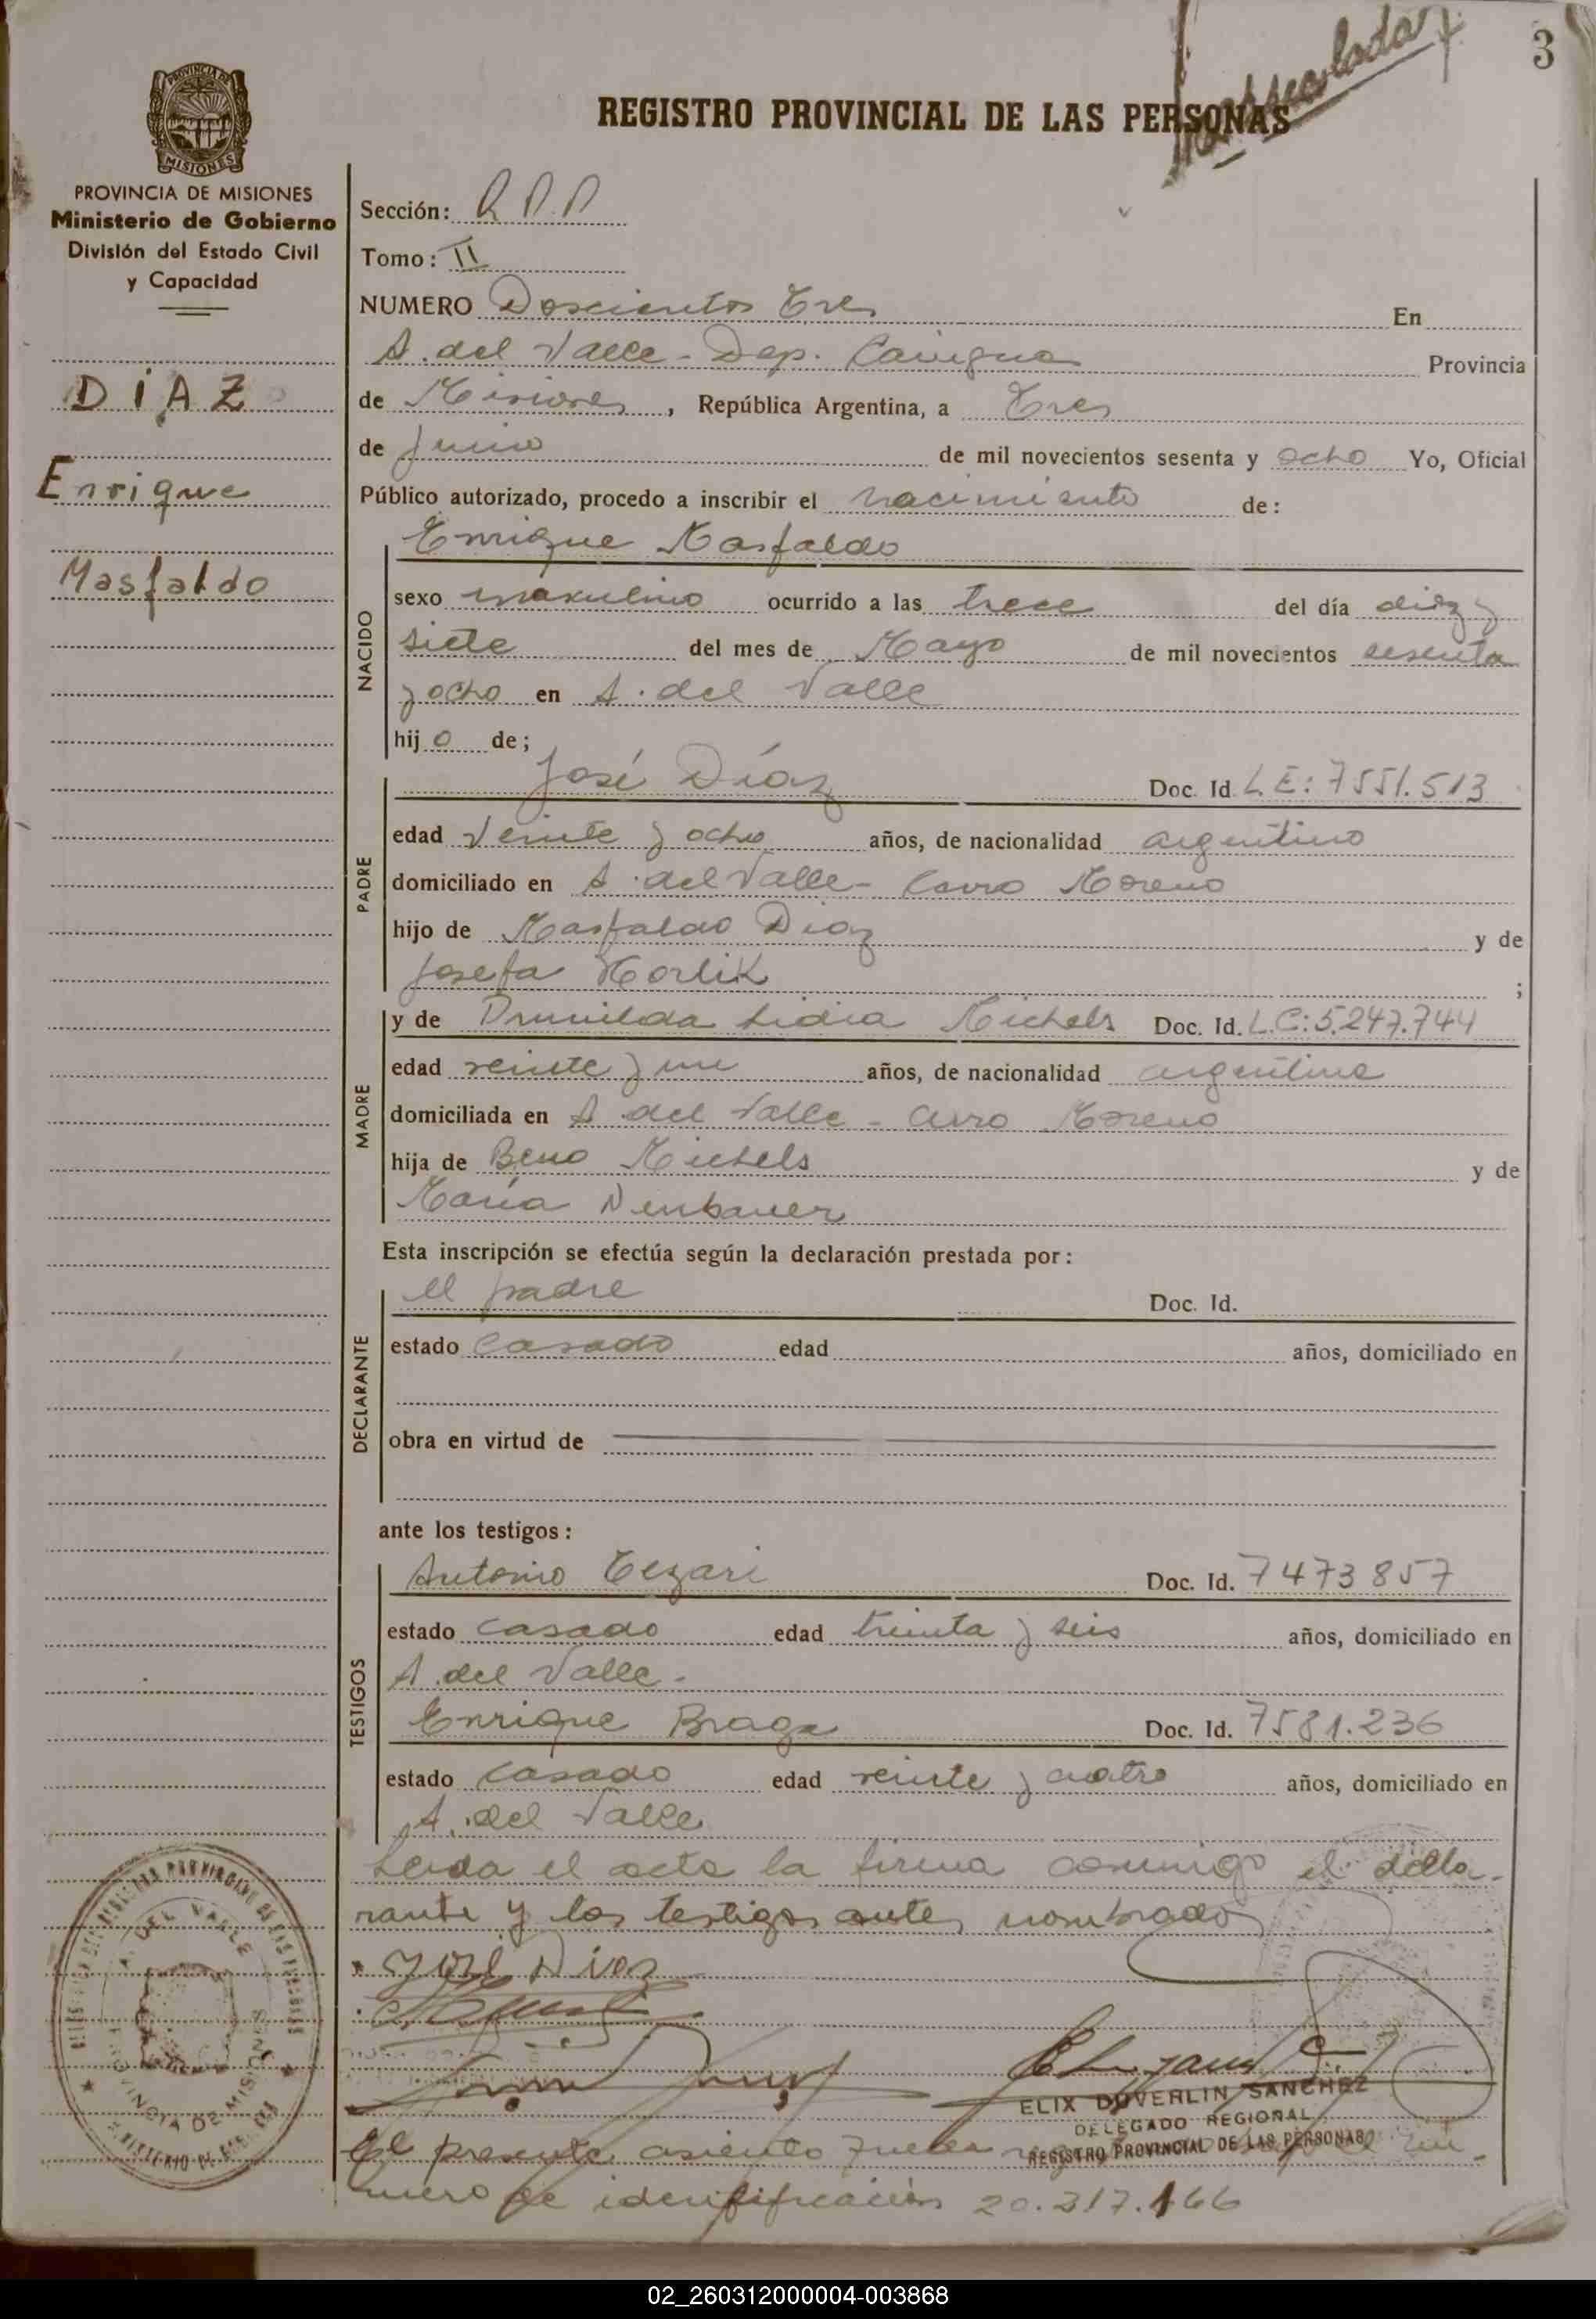 3
REGISTRO PROVINCIAL DE LAS PERSONAS
PROVINCIA DE
MISIONES
PROVINCIA DE MISIONES
Ministerio de Gobierno
División del Estado Civil
y Capacidad
DÍAZ
Enrique
Masfaldo
Sección:
Tomo: II
NUMERO Doscientos Tres En
A. del Valle - Dep. Cainguas Provincia
de Misiones, República Argentina, a Tres
de Junio de mil novecientos sesenta y ocho Yo, Oficial
Público autorizado, procedo a inscribir el nacimiento de:
NACIDO
Enrique Masfaldo
sexo masculino ocurrido a las trece del día diez y
siete del mes de Mayo de mil novecientos sesenta
y ocho en A. del Valle
hijo de;
PADRE
José Díaz Doc. Id. L.E: 7551.513
edad veinte y ocho años, de nacionalidad argentino
domiciliado en A. del Valle - Cerro Moreno
hijo de Masfaldo Diaz y de
Josefa Horlik ;
MADRE
y de Lidia Michels Doc. Id. L.C: 5.247.744
edad veinte y un años, de nacionalidad argentina
domiciliada en A del Valle - Cerro Moreno
hija de Beno Michels y de
María Neubauer
Esta inscripción se efectúa según la declaración prestada por:
DECLARANTE
el padre Doc. Id.
estado casado edad años, domiciliado en
obra en virtud de
ante los testigos:
TESTIGOS
Antonio Cezari Doc. Id. 7473857
estado casado edad treinta y seis años, domiciliado en
A. del Valle.
Enrique Braga Doc. Id. 7581.236
estado casado edad veinte y cuatro años, domiciliado en
A. del Valle
Leida el acta la firma conmigo el decla-
rante y los testigos antes nombrados
José Diaz
ELIX DUVERLIN SANCHEZ
DELEGADO REGIONAL
REGISTRO PROVINCIAL DE LAS PERSONAS
A. DEL VALLE
PROVINCIA DE MISIONES
El presente asiento nú-
mero de identificación 20.317.166
02_260312000004-003868